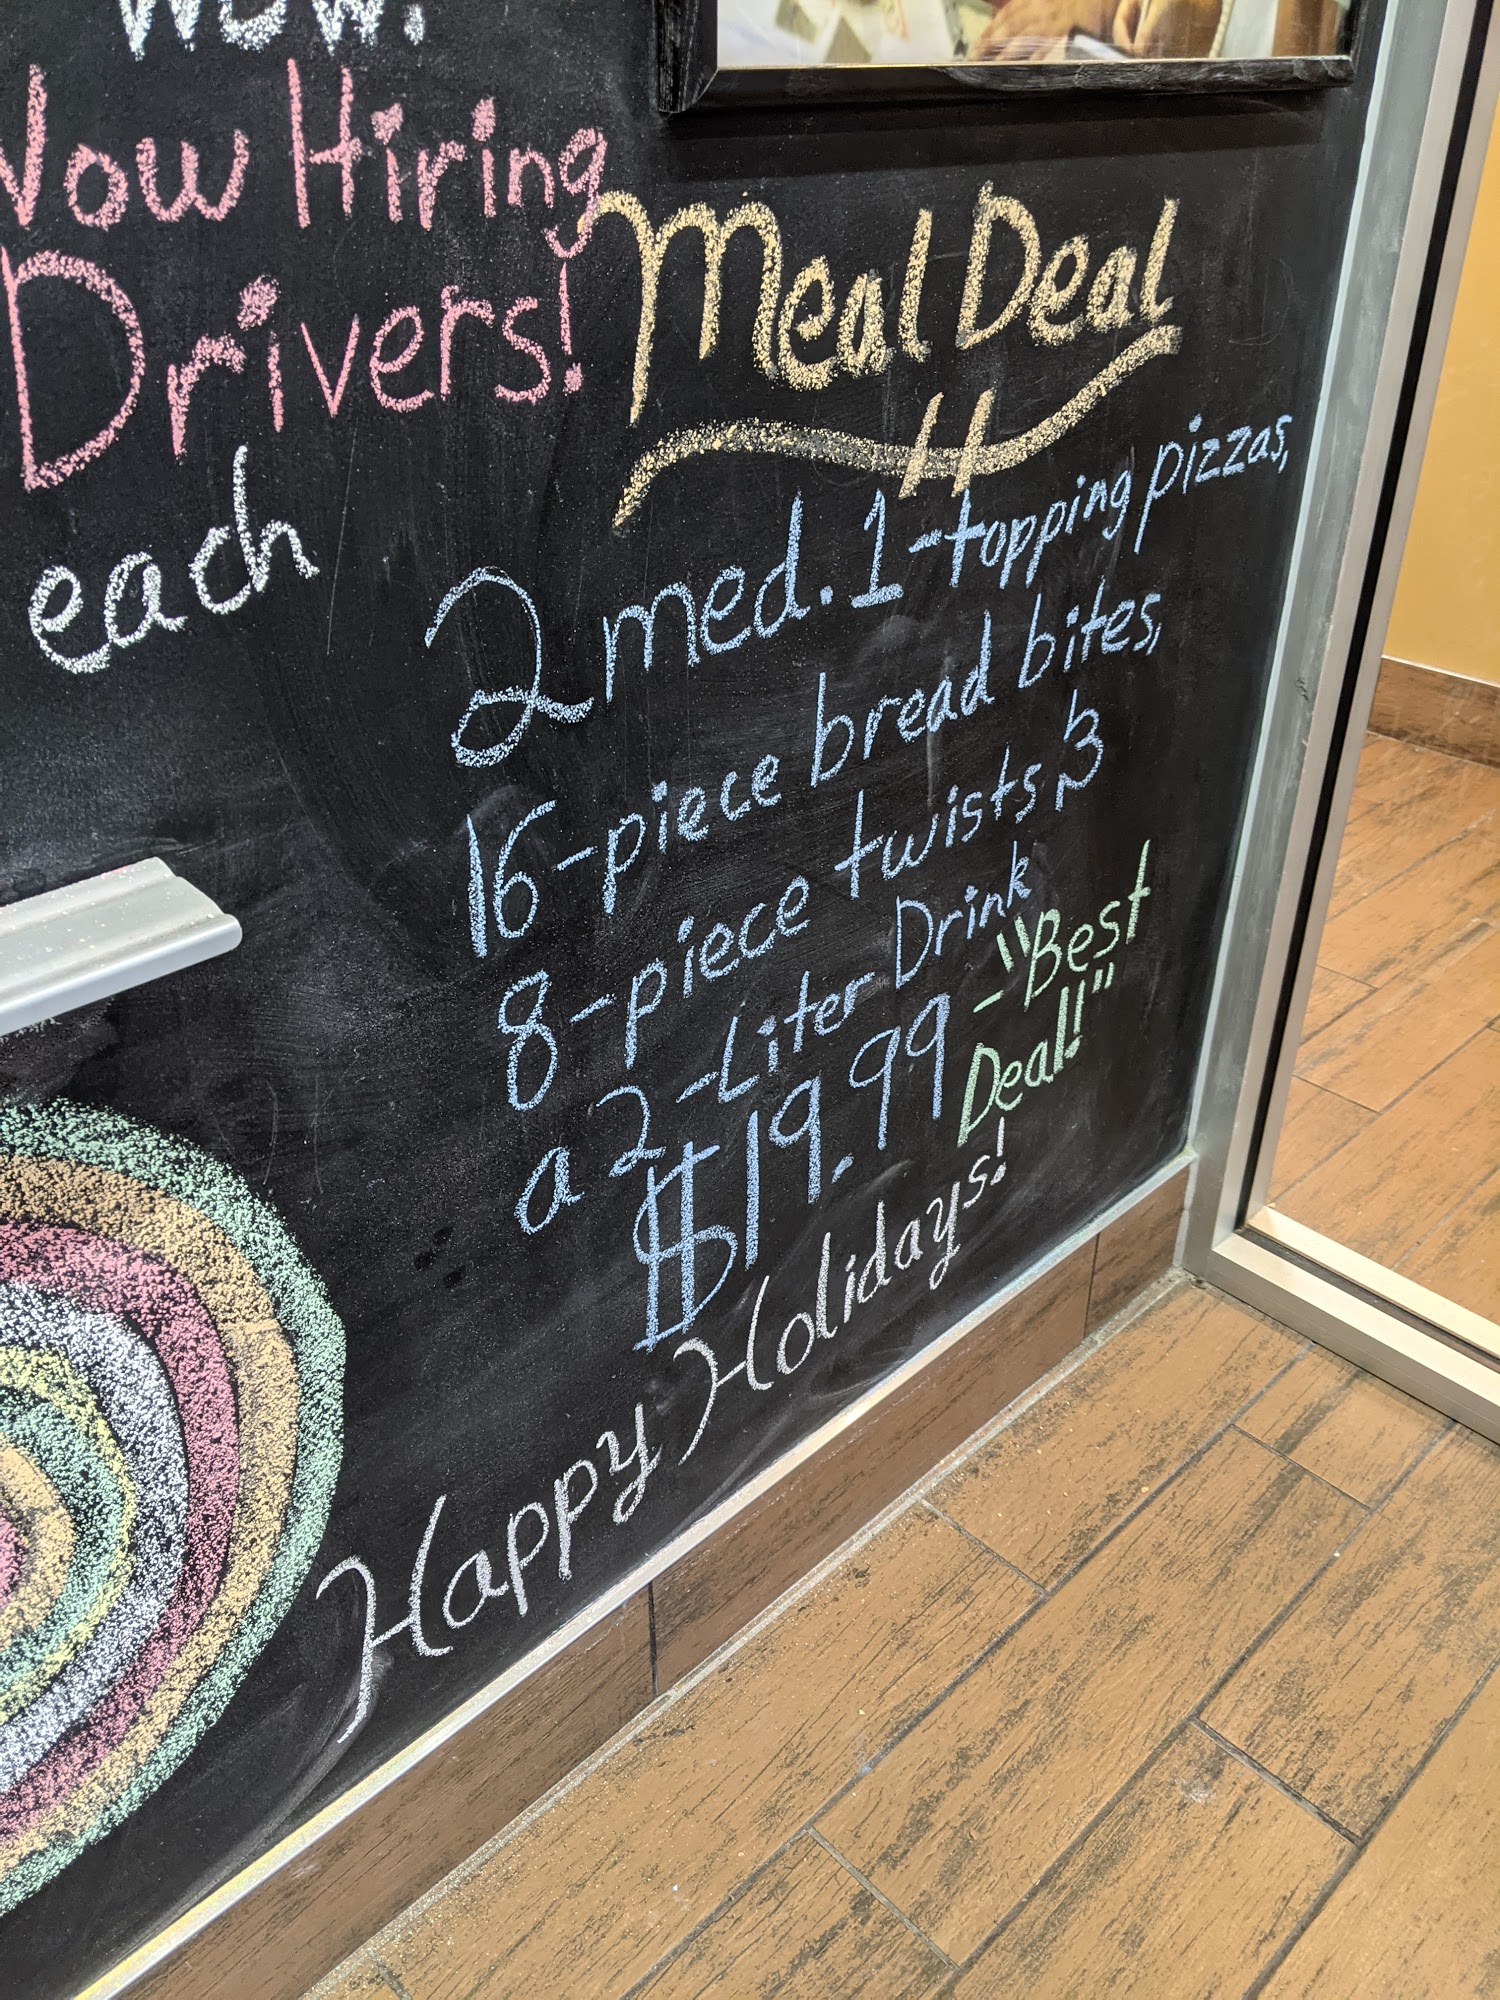 Now Hiring
Drivers!
each
Meal Deal
2 med. 1-topping pizzas,
16-piece bread bites,
8-piece twists, &
a 2-Liter Drink
$19.99 - "Best
Deal!"
Happy Holidays!